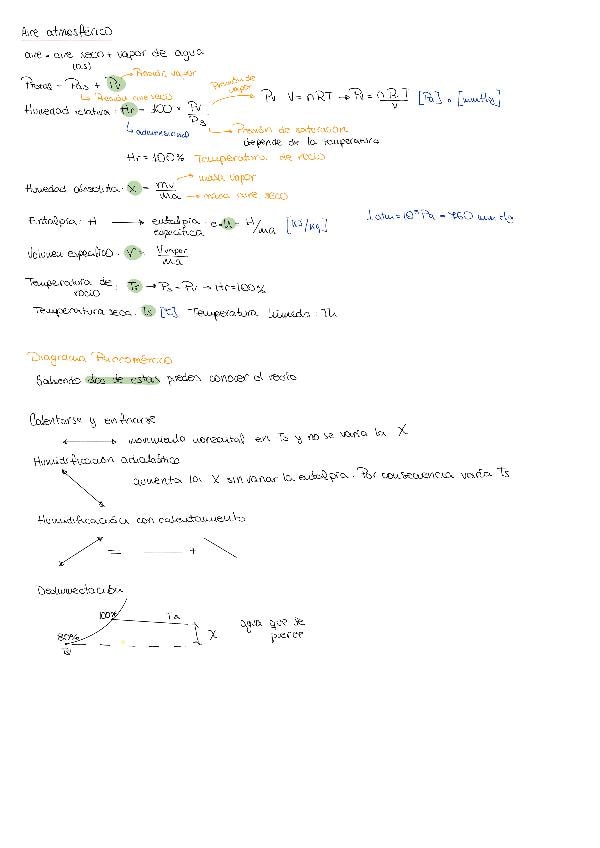 Aire atmosférico
aire = aire seco + vapor de agua
(as)
Pv → Presión vapor
↳ Presión aire seco
Humedad relativa: Hr = 100 × Pv/Ps
Presión de vapor → Pv V = nRT → Pv = nRT/V [Pa] o [mmHg]
↳ adimensional
↳ Presión de saturación
depende de la temperatura
Hr = 100% Temperatura de rocío
Humedad absoluta: X = mv/ma
→ masa vapor
→ masa aire seco
Entalpía: H → entalpía específica H/ma [kJ/kg]
1 atm = 10⁵ Pa = 760 mm Hg
Volumen específico: V = Vvapor/ma
Temperatura de rocío: Tr → Ps = Pv → Hr = 100%
Temperatura seca: Ts [ºC] Temperatura húmeda: Th
Diagrama
Sabiendo dos de estas puedes conocer el resto
Calentarse y enfriarse
horizontal en Ts y no se varía la X
Humidificación adiabática
aumenta la X sin variar la entalpía. Por consecuencia varía Ts
Humidificación con calentamiento
— +
100%
80%
X
agua que se pierde